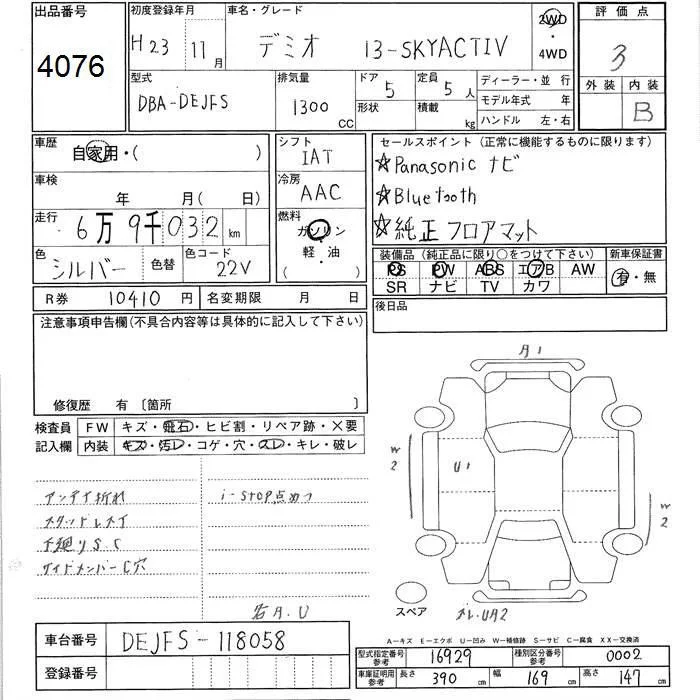 出品番号
4076
初度登録年月
H23年 11月
車名・グレード
デミオ 13-SKYACTIV
2WD
・
4WD
評価点
3
外装 内装
B
型式
DBA-DEJFS
排気量
1300 CC
ドア 5
形状
定員 5人
積載 kg
ディーラー・並行
モデル年式 年
ハンドル 左・右
車歴
自家用・( )
車検
年 月( 日)
走行
6万9千032km
色
シルバー 色替
色コード
22V
シフト
IAT
冷房
AAC
燃料
ガソリン
・
軽・油
( )
セールスポイント (正常に機能するものに限ります)
☆Panasonic ナビ
☆Bluetooth
☆純正フロアマット
装備品 (純正品に限り○をつけて下さい)
新車保証書
PS PW ABS エアB AW
SR ナビ TV カワ
有・無
R券 10410円
名変期限 月 日
後日品
注意事項申告欄(不具合内容等は具体的に記入して下さい)
修復歴 有 〔箇所
検査員
記入欄
FW キズ・飛石・ヒビ割・リペア跡・×要
内装 キズ・汚レ・コゲ・穴・スレ・キレ・破レ
アンテナ折れ
スタッドレスタイ
下廻りS.C
サイドメンバーC穴
i-STOP点めつ
右A.U
A1
W2
U1
W2
UA2
スペア
A-キズ E-エクボ U-凹み W-補修跡 S-サビ C-腐食 XX-交換済
車台番号
DEJFS-118058
登録番号
型式指定番号
参考
16929
種別区分番号
参考
0002
車庫証明用
参考
長さ 390 cm
幅 169 cm
高さ 147 cm